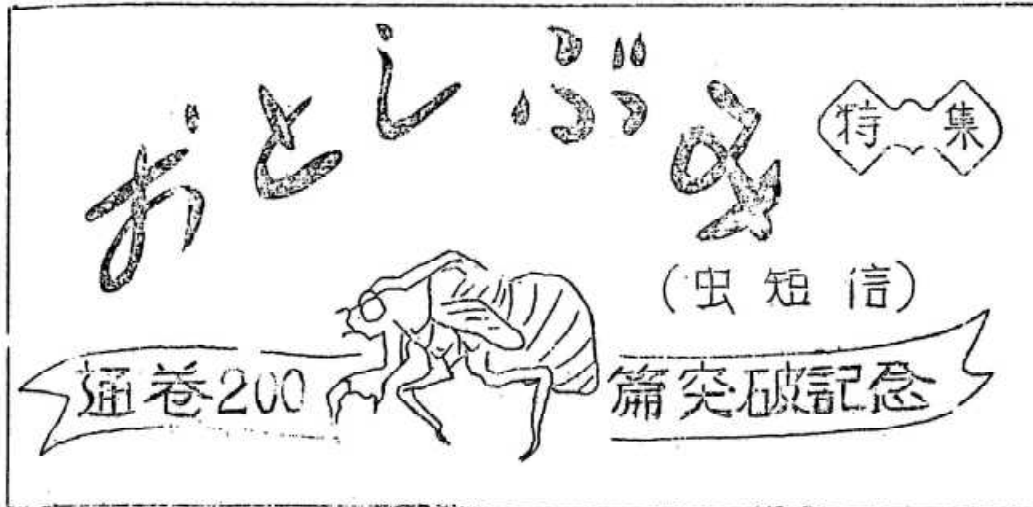 おとしぶみ
特集
(虫短信)
通巻200篇突破記念